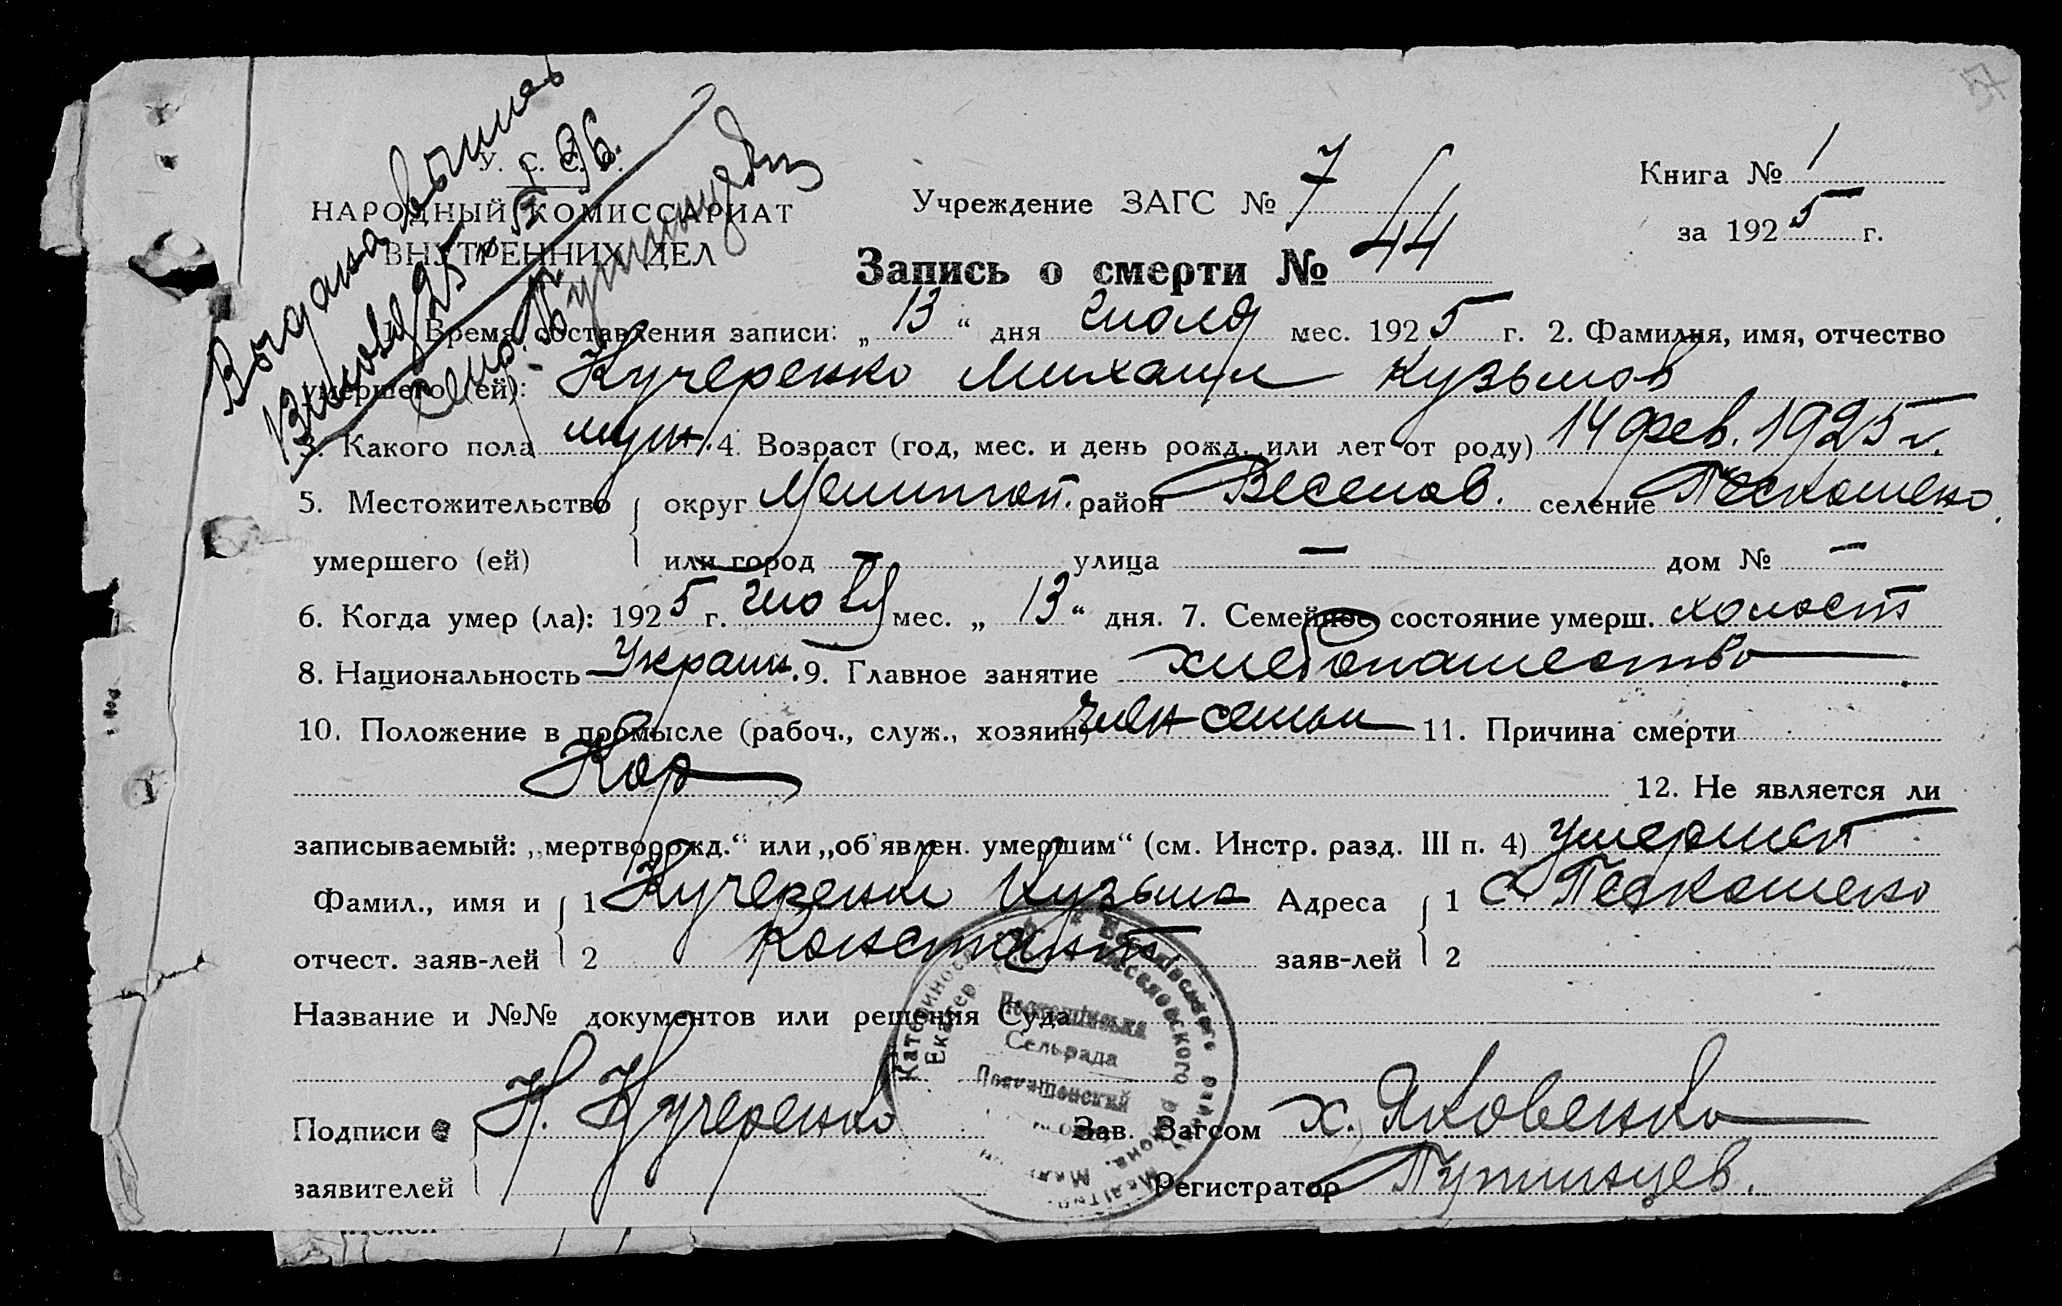 57
Выдана выпись
13 июля 25 г. № 96.
Секр. Путинцев
У. С. С. Р.
НАРОДНЫЙ КОМИССАРИАТ
ВНУТРЕННИХ ДЕЛ
Учреждение ЗАГС № 7
Книга № 1
за 1925 г.
Запись о смерти № 44
Время составления записи: „13“ дня июля мес. 1925 г. 2. Фамилия, имя, отчество
умершего (ей): Кучеренко Михаил Кузьмов
3. Какого пола муж. 4. Возраст (год, мес. и день рожд. или лет от роду) 14 фев. 1925 г.
5. Местожительство округ Мелитоп. район Веселов. селение Пескошено.
умершего (ей) или город – улица – дом № –
6. Когда умер (ла): 1925 г. июля мес. „13“ дня. 7. Семейное состояние умерш. холост
8. Национальность Украин. 9. Главное занятие хлебопашество
10. Положение в промысле (рабоч., служ., хозяин) член семьи 11. Причина смерти
Кор 12. Не является ли
записываемый: „мертворожд.“ или „об'явлен. умершим“ (см. Инстр. разд. III п. 4) умерший
Фамил., имя и 1 Кучеренко Кузьма Адреса 1 с. Пескошено
отчест. заяв-лей 2 Констант. заяв-лей 2
Название и №№ документов или решения Суда
Сельрада
Подписи К. Кучеренко Зав. Загсом Х. Яковенко
заявителей Регистратор Путинцев.